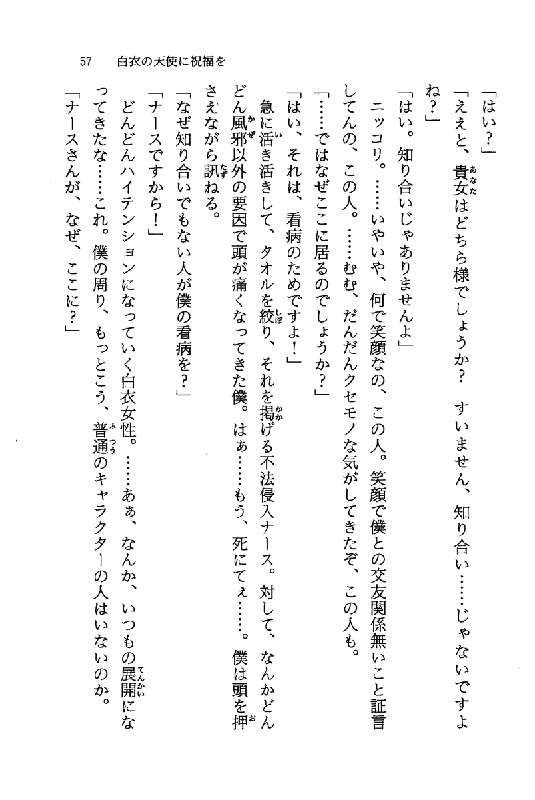 57　白衣の天使に祝福を
「はい？」
「ええと、貴女はどちら様でしょうか？　すいません、知り合い……じゃないですよ
ね？」
「はい。知り合いじゃありませんよ」
　ニッコリ。……いやいや、何で笑顔なの、この人。笑顔で僕との交友関係無いこと証言
してんの、この人。……むむ、だんだんクセモノな気がしてきたぞ、この人も。
「……ではなぜここに居るのでしょうか？」
「はい、それは、看病のためですよ！」
　急に活き活きして、タオルを絞り、それを掲げる不法侵入ナース。対して、なんかどん
どん風邪以外の要因で頭が痛くなってきた僕。はぁ……もう、死にてぇ……。僕は頭を押
さえながら訊ねる。
「なぜ知り合いでもない人が僕の看病を？」
「ナースですから！」
　どんどんハイテンションになっていく白衣女性。……あぁ、なんか、いつもの展開にな
ってきたな……これ。僕の周り、もっとこう、普通のキャラクターの人はいないのか。
「ナースさんが、なぜ、ここに？」